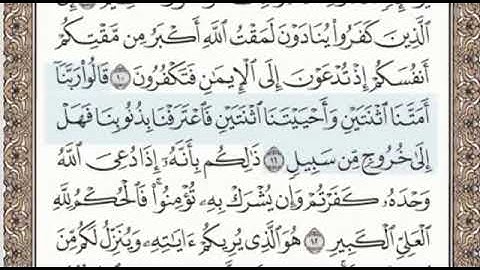 ٱلَّذِينَ كَفَرُوا۟ يُنَادَوْنَ لَمَقْتُ ٱللَّهِ أَكْبَرُ مِن مَّقْتِكُمْ
أَنفُسَكُمْ إِذْ تُدْعَوْنَ إِلَى ٱلْإِيمَٰنِ فَتَكْفُرُونَ ١٠ قَالُوا۟ رَبَّنَآ
أَمَتَّنَا ٱثْنَتَيْنِ وَأَحْيَيْتَنَا ٱثْنَتَيْنِ فَٱعْتَرَفْنَا بِذُنُوبِنَا فَهَلْ
إِلَىٰ خُرُوجٍ مِّن سَبِيلٍ ١١ ذَٰلِكُم بِأَنَّهُۥٓ إِذَا دُعِىَ ٱللَّهُ
وَحْدَهُۥ كَفَرْتُمْ وَإِن يُشْرَكْ بِهِۦ تُؤْمِنُوا۟ فَٱلْحُكْمُ لِلَّهِ
ٱلْعَلِىِّ ٱلْكَبِيرِ ١٢ هُوَ ٱلَّذِى يُرِيكُمْ ءَايَٰتِهِۦ وَيُنَزِّلُ لَكُم مِّنَ